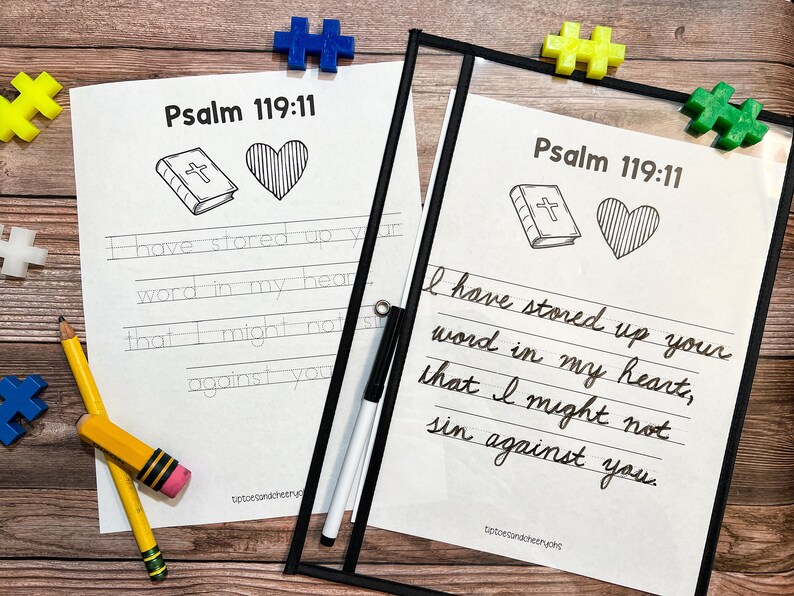 Psalm 119:11
I have stored up your
word in my heart,
that I might not sin
against you
tiptoesandcheeryohs
Psalm 119:11
I have stored up your
word in my heart,
that I might not
sin against you.
tiptoesandcheeryohs